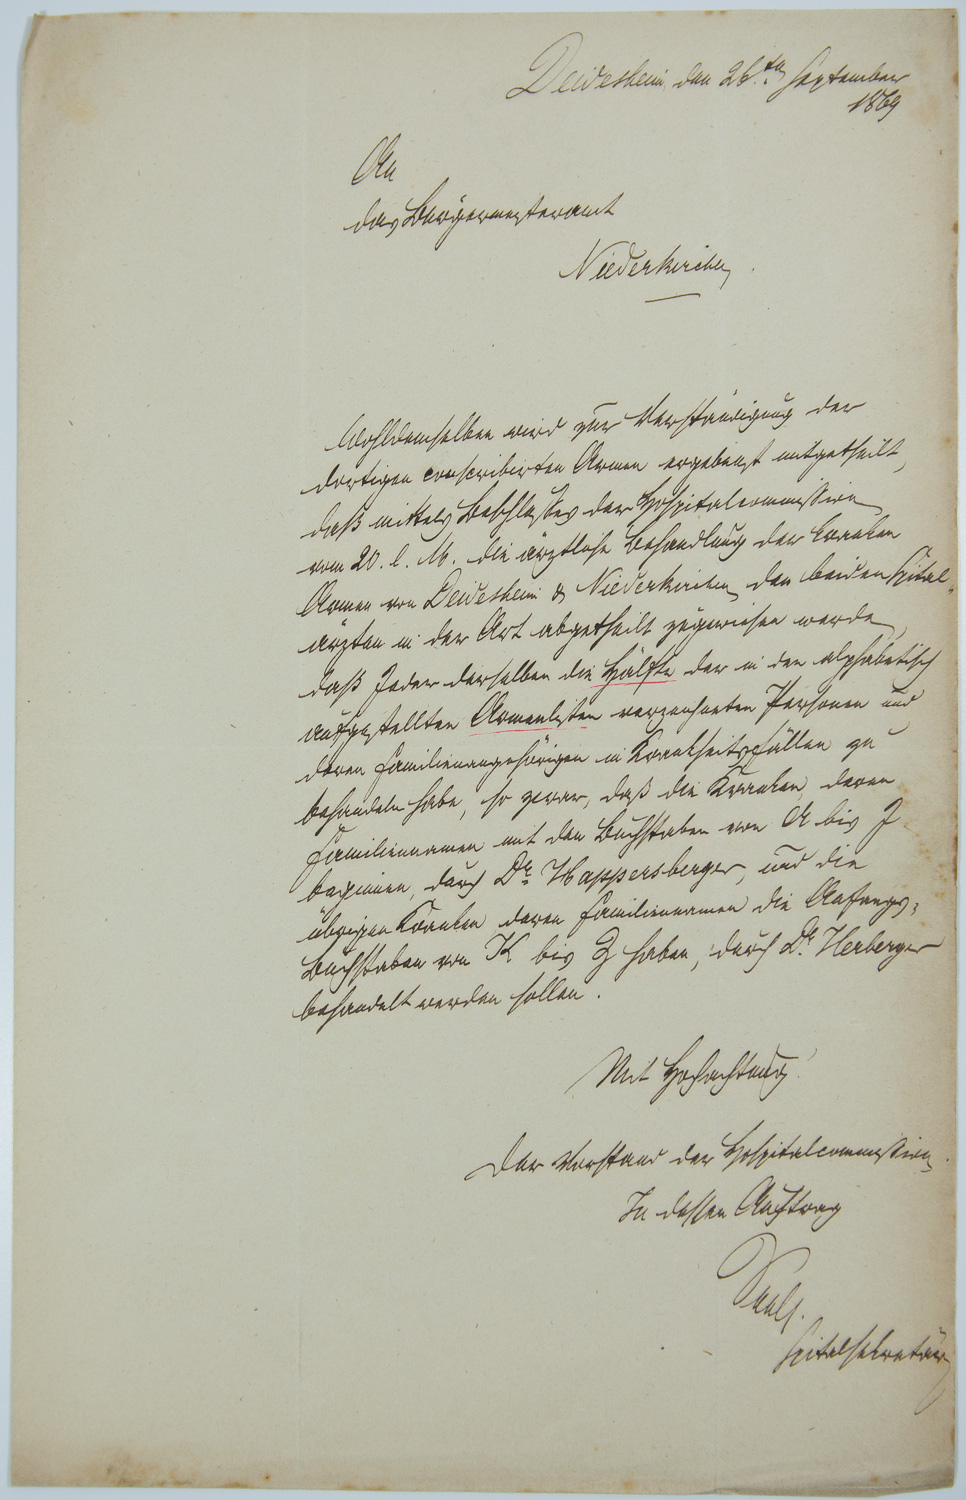 Deidesheim, den 26.ten September
1869
An
das Bürgermeisteramt
Niederkirchen.
Wohldemselben wird zur Verständigung der
dortigen conscribirten Armen ergebenst mitgetheilt,
daß mittels Beschlusses der Hospitalcommission
vom 20. l. M. die ärztliche Behandlung der kranken
Armen von Deidesheim & Niederkirchen den beiden Spital-
ärzten in der Art abgetheilt zugewiesen werde,
daß Jeder derselben die Hälfte der in den alphabetisch
aufgestellten Armenlisten verzeichneten Personen und
deren Familienangehörigen in Krankheitsfällen zu
behandeln habe, so zwar, daß die Kranken, deren
Familiennamen mit den Buchstaben von A bis J
beginnen, durch Dr. Happersberger, und die
übrigen Kranken deren Familiennamen die Anfangs-
Buchstaben von K bis Z haben, durch Dr. Herberger
behandelt werden sollen.
Mit Hochachtung!
Der Vorstand der Hospitalcommission.
In dessen Auftrag
Spitalsekretär